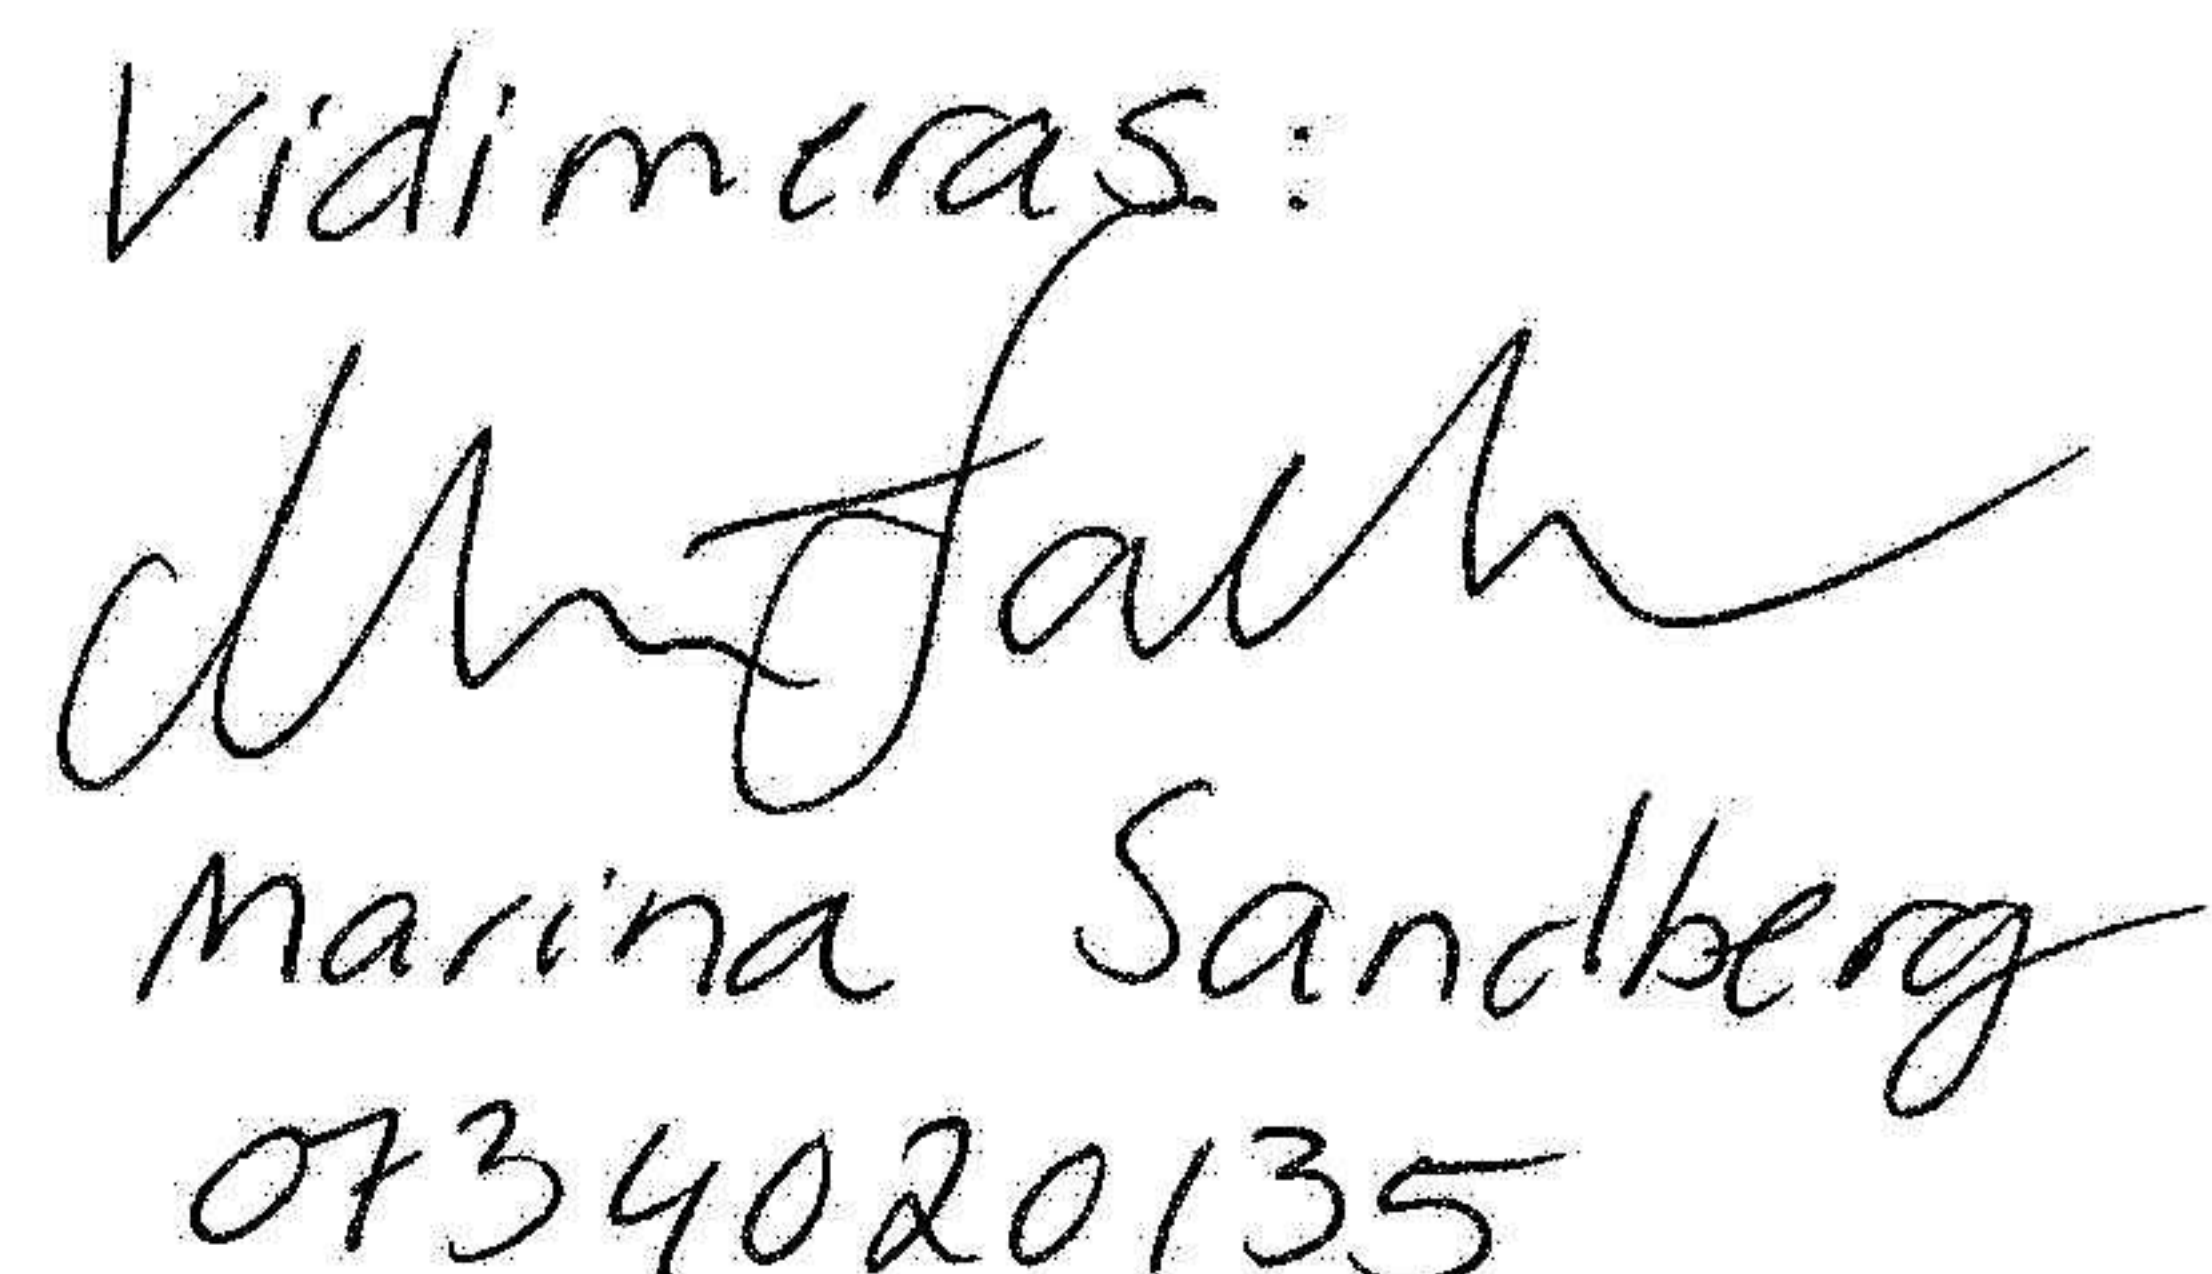 Vidimeras:
Marina Sandberg
0734020135